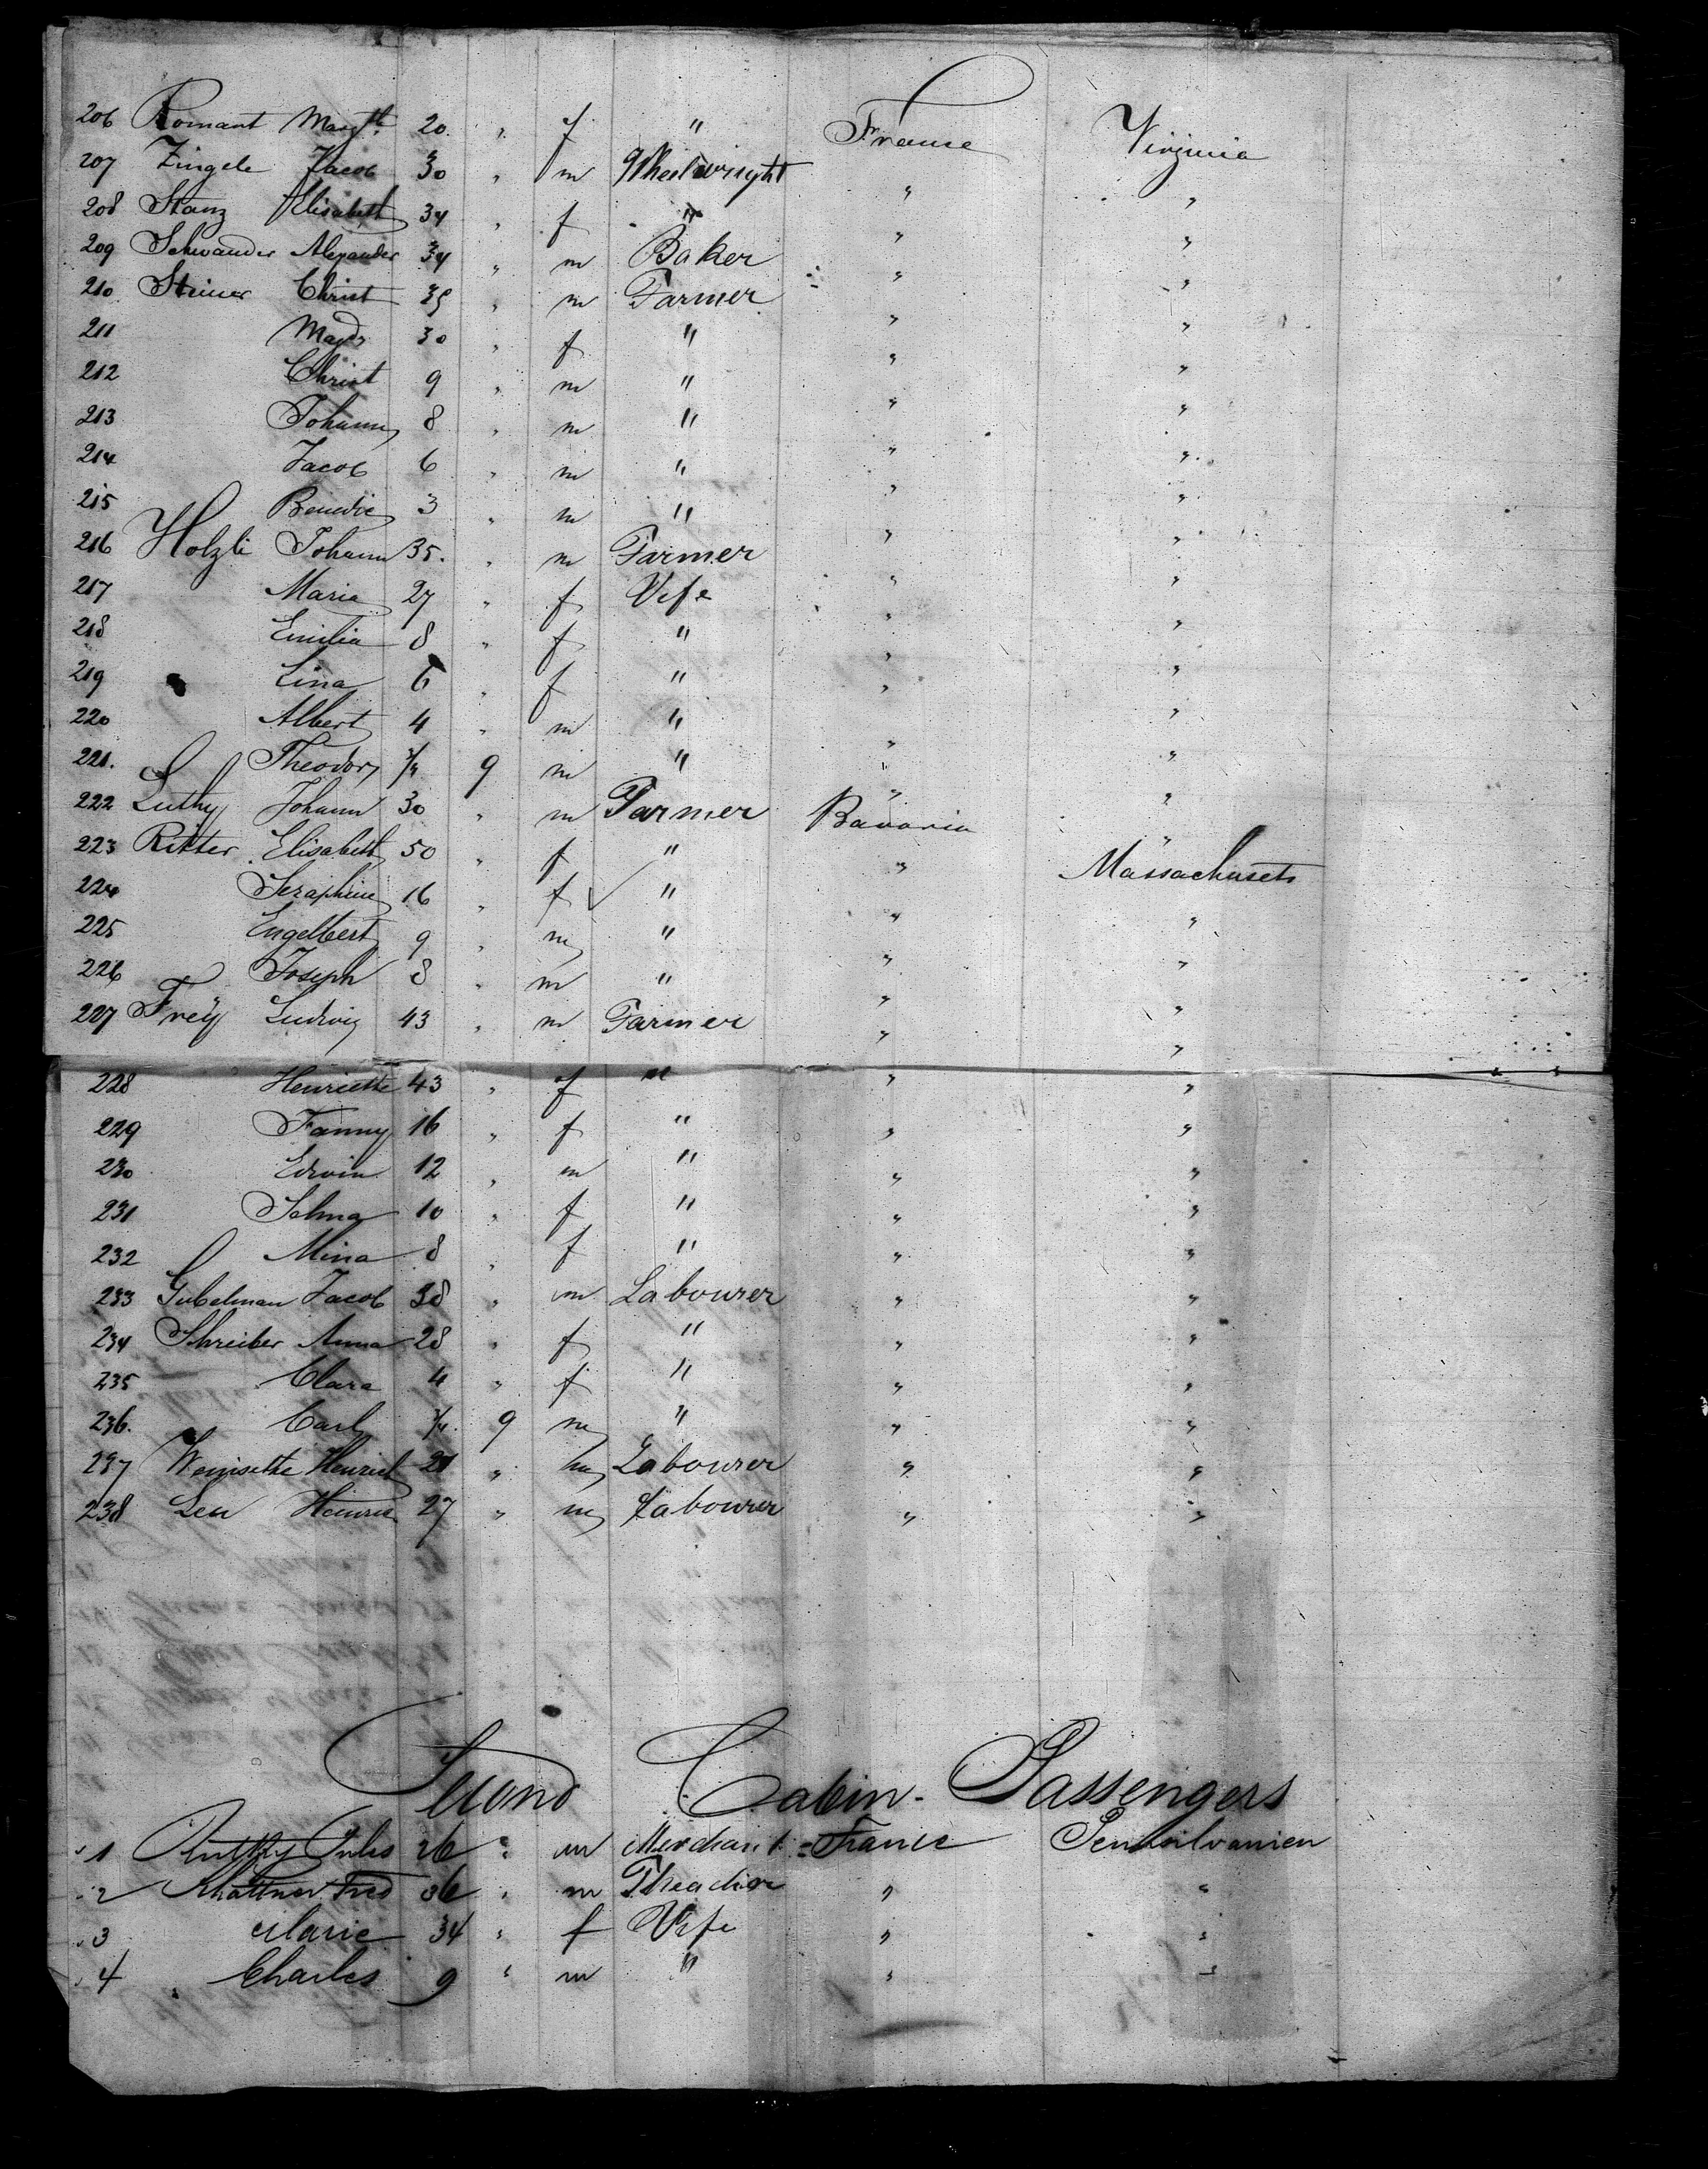 206 Romant Margth. 20 " f " France Virginia
207 Zingele Jacob 30 " m Wheelwright " "
208 Stanz Elisabeth 34 " f " " "
209 Schwander Alexander 34 " m Baker " "
210 Steiner Christ 35 " m Farmer " "
211 Magd. 30 " f " " "
212 Christ 9 " m " " "
213 Johann 8 " m " " "
214 Jacob 6 " m " " "
215 Benedic 3 " m " " "
216 Holzli Johann 35. " m Farmer " "
217 Maria 27 " f Vife " "
218 Emilia 8 " f " " "
219 Lina 6 " f " " "
220 Albert 4 " m " " "
221. Theodor 3/4 9 m " " "
222 Luthy Johann 30 " m Farmer Bavaria "
223 Ritter Elisabeth 50 " f " " Massachusets
224 Seraphine 16 " f " " "
225 Engelbert 9 " m " " "
226 Joseph 8 " m " " "
227 Freÿ Ludwig 43 " m Farmer " "
228 Henriette 43 " f " " "
229 Fanny 16 " f " " "
230 Edwin 12 " m " " "
231 Selma 10 " f " " "
232 Mina 8 " f " " "
233 Gubelman Jacob 38 " m Labourer " "
234 Schreiber Anna 28 " f " " "
235 Clara 4 " f " " "
236. Carl 3/4. 9 m " " "
237 Henrich " m Labourer " "
238 Leu Heinric 27 " m Labourer " "
Second Cabin-Passengers
1 Jules 26 " m Merchant France Pensilvanien
2 Fred 36 " m " "
3 Marie 34 " f Vife " "
4 " Charles 9 " m " " "